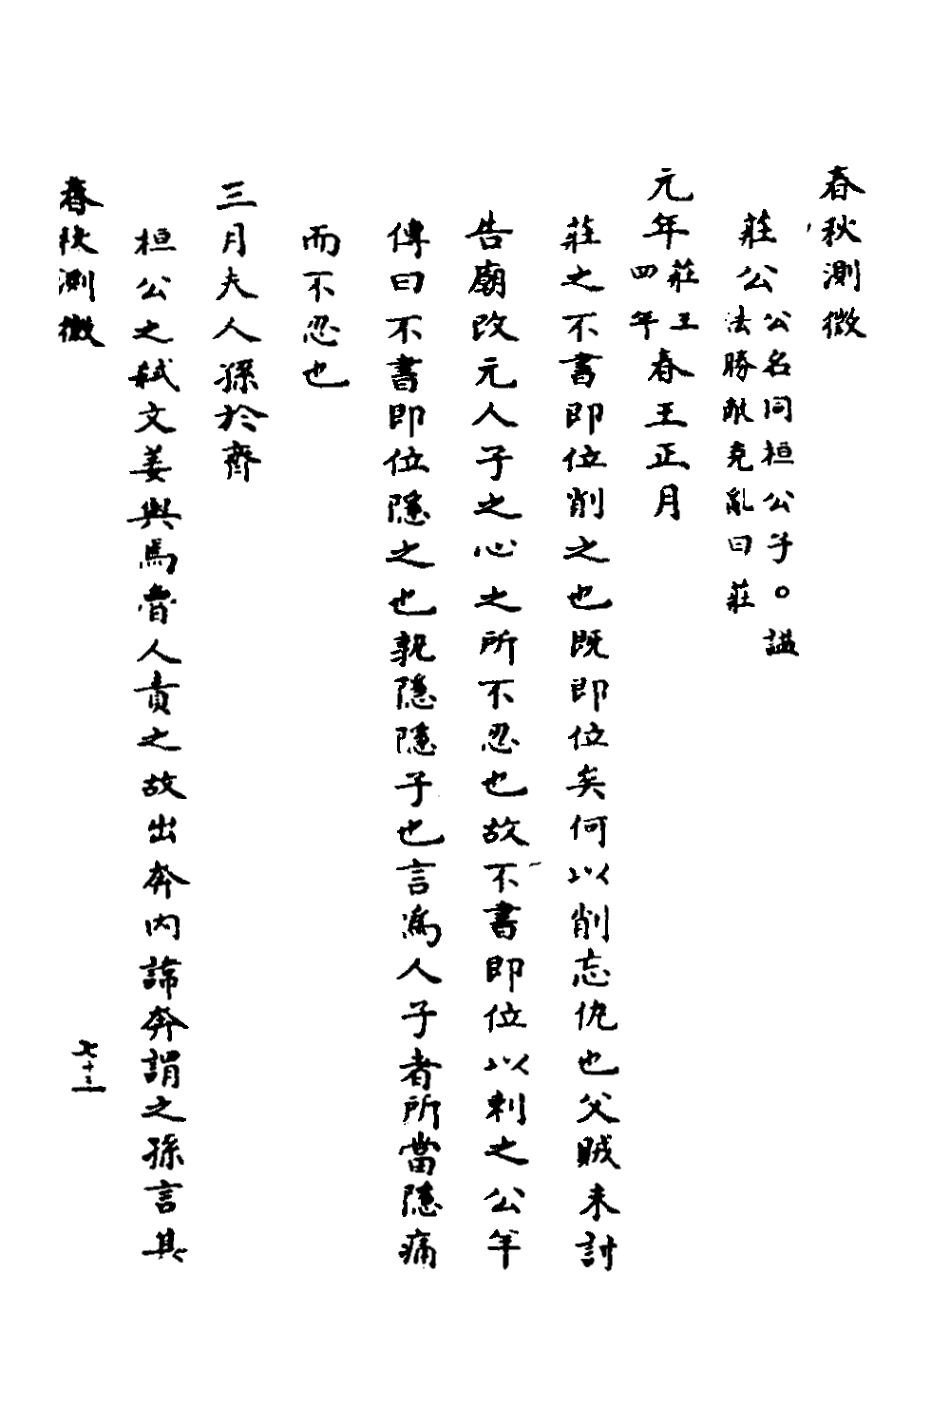 春秋測微
莊公公名同桓公子。諡
法勝敵克亂曰莊
元年莊王四年春王正月
莊之不書即位削之也既即位矣何以削忘仇也父賊未討
告廟改元人子之心之所不忍也故不書即位以刺之公羊
傳曰不書即位隱之也孰隱隱子也言為人子者所當隱痛
而不忍也
三月夫人孫於齊
桓公之弒文姜與焉魯人責之故出奔內諱奔謂之孫言其
春秋測微
七十三